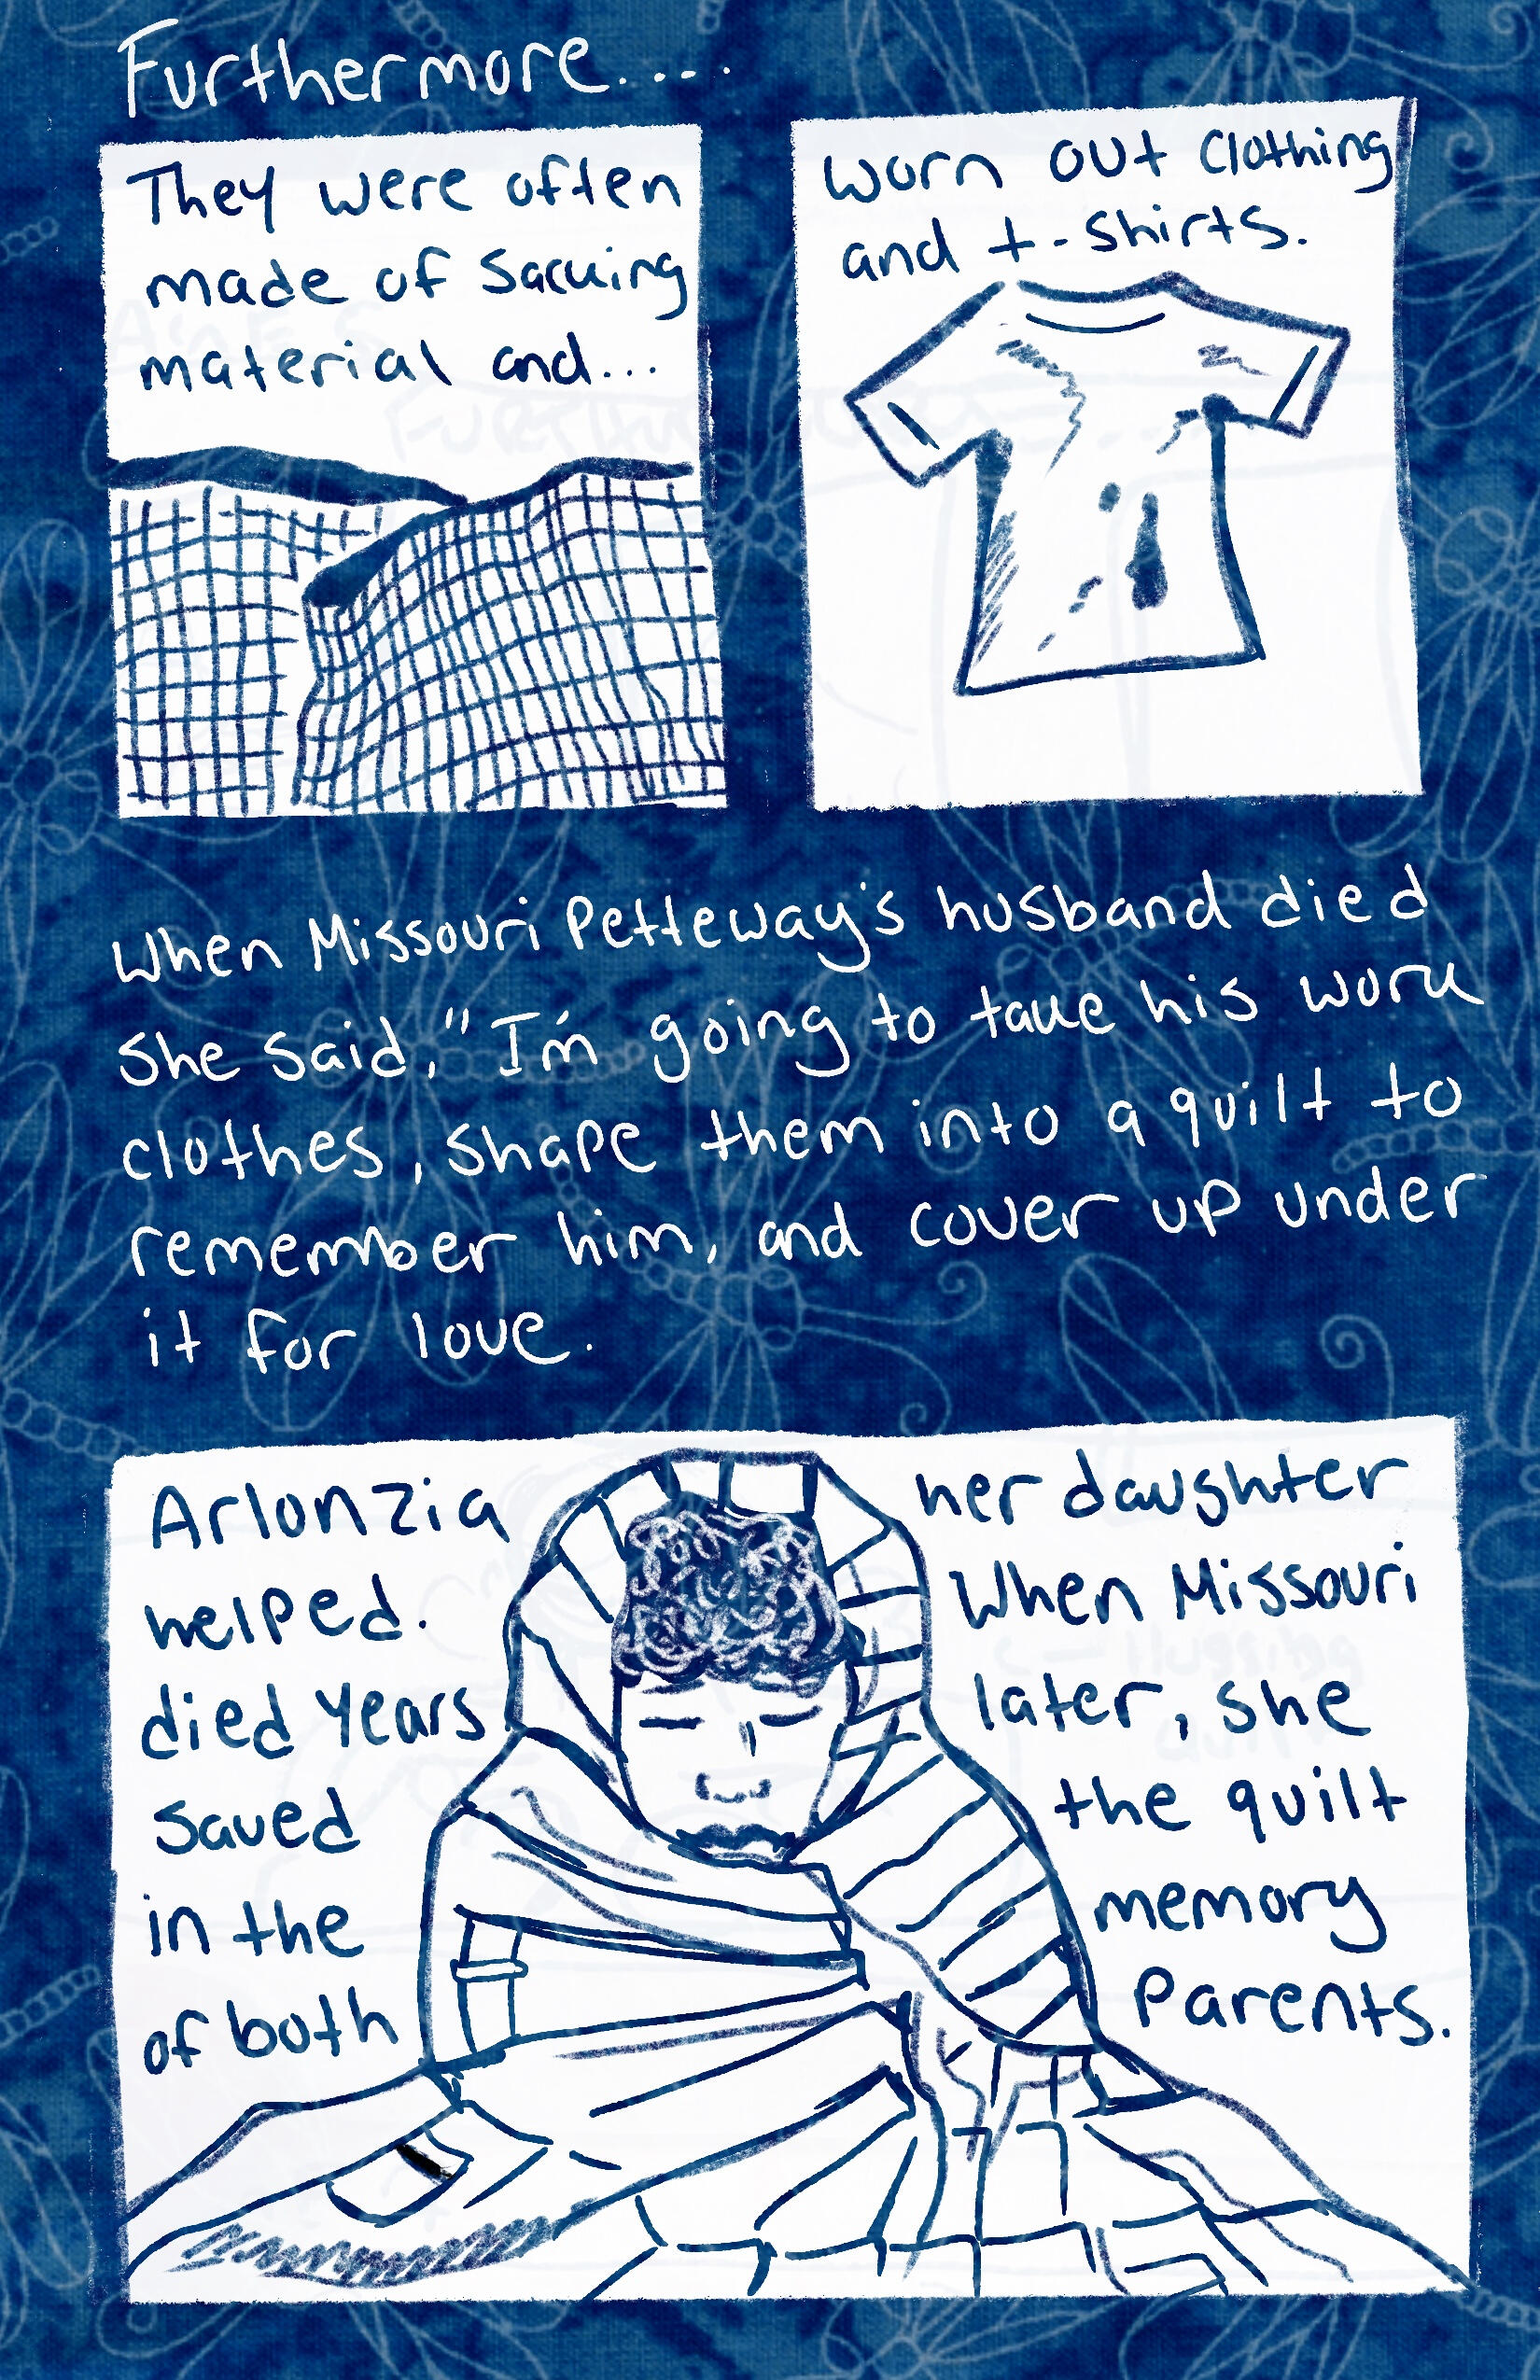 Furthermore.....
They were often
made of Sacking
material and...
worn out clothing
and t-shirts.
When Missouri Petteway's husband died
she said, "I'm going to take his work
clothes, shape them into a quilt to
remember him, and cover up under
it for love.
Arlonzia her daughter
helped. When Missouri
died years later, she
saved the quilt
in the memory
of both parents.